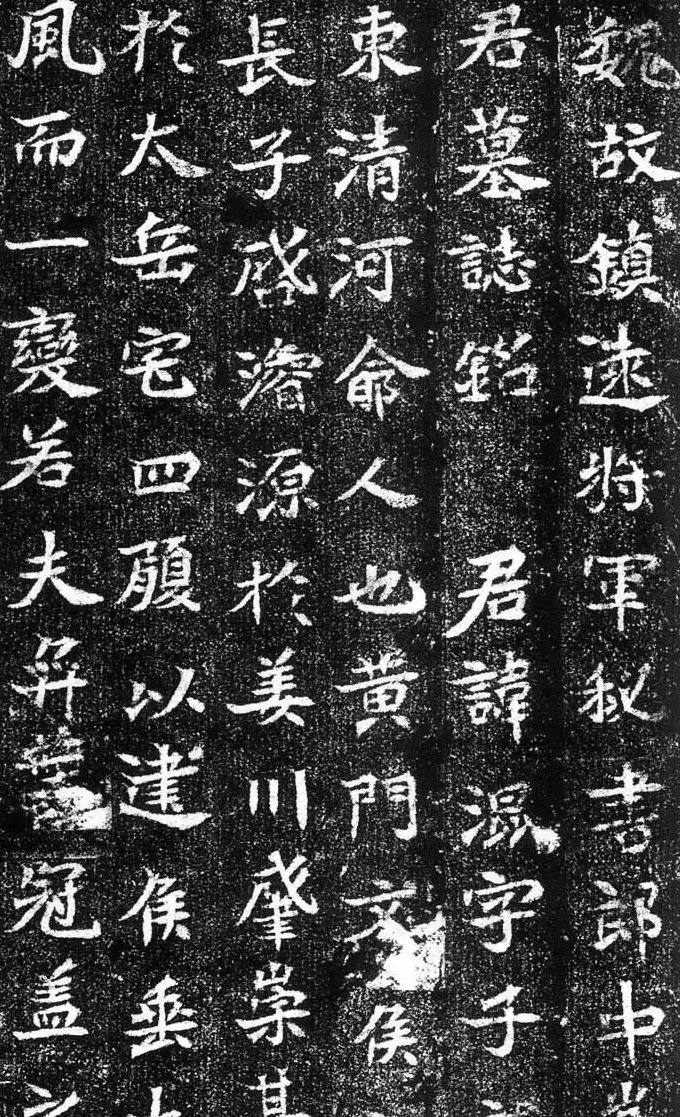 魏故鎮遠將軍秘書郎中
君墓誌銘　君諱混字子
東清河鄃人也黃門文侯
長子啓濬源於姜川肇崇基
於太岳宅四履以建侯垂大
風而一變若夫弈葉冠蓋之